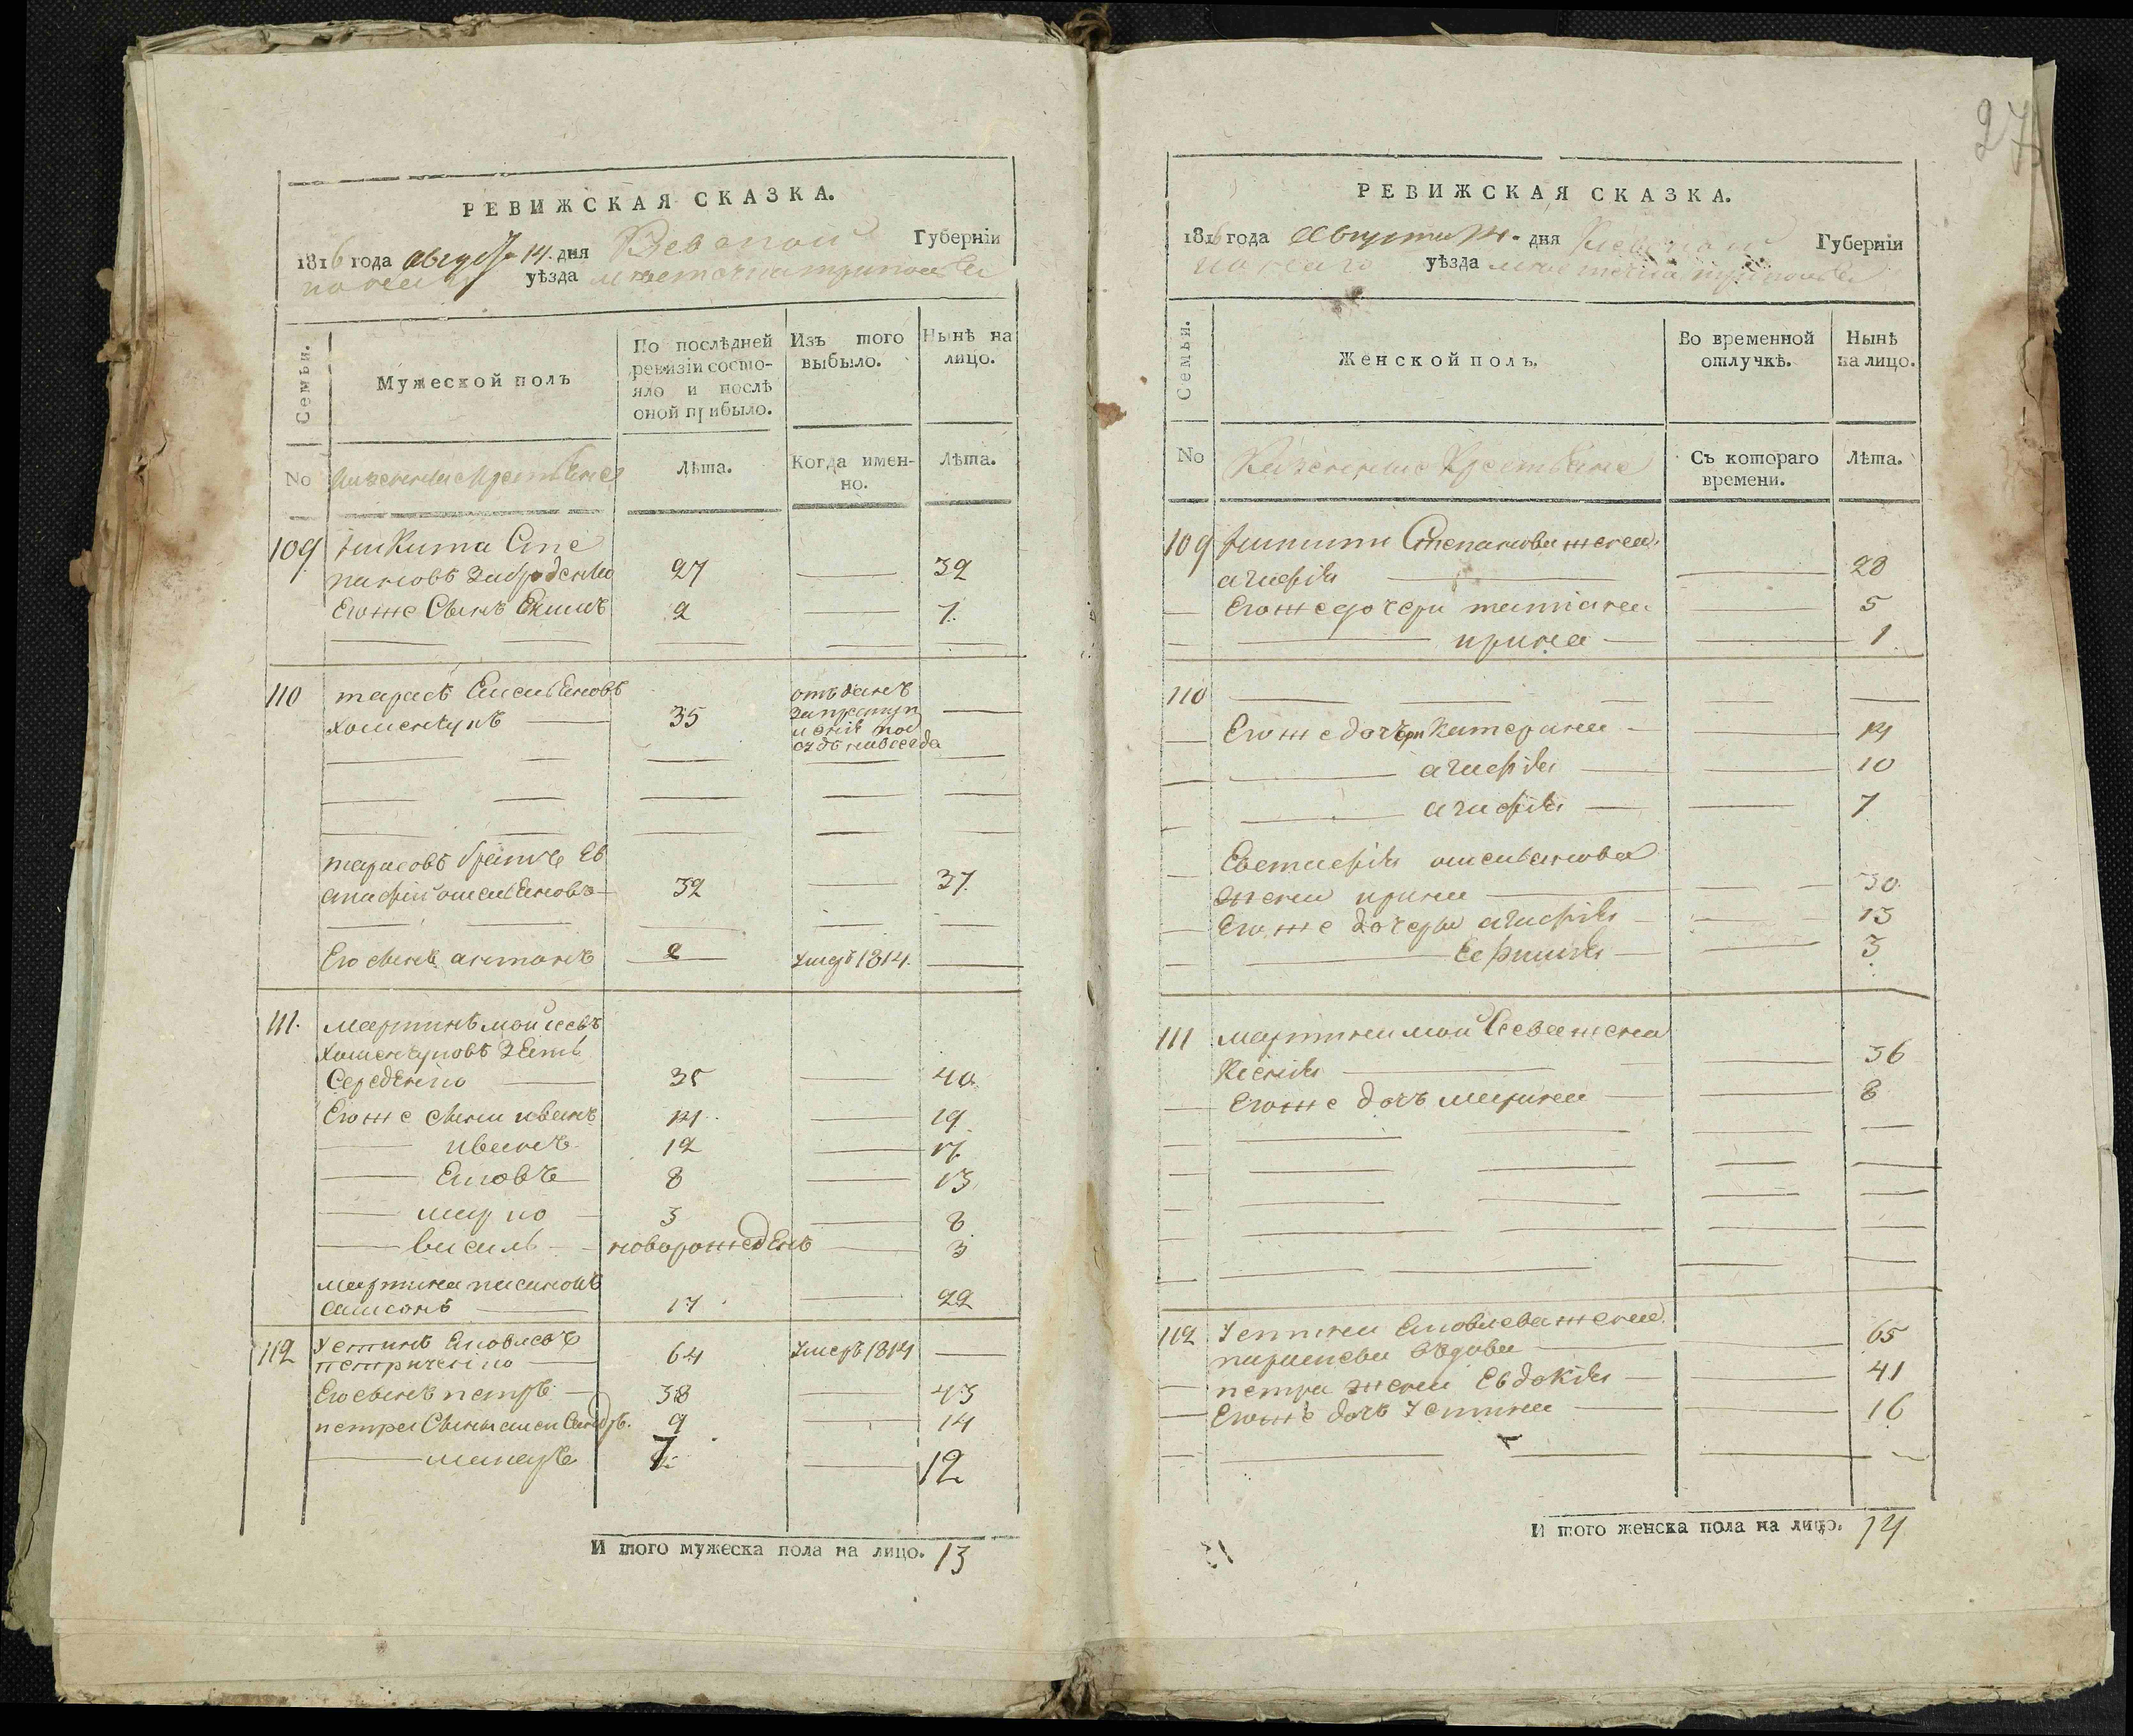 27
РЕВИЖСКАЯ СКАЗКА.
1816 года августа 14. дня Киевской Губерніи
уѣзда местечка триполья
Семьи.
Мужеской полъ
По послѣдней
ревизіи состо-
яло и послѣ
оной прибыло.
Изъ того
выбыло.
Нынѣ на
лицо.
No
Казенные крестьяне
Лѣта.
Когда имен-
но.
Лѣта.
109 Никита Сте
пановъ 27 32
Егоже Сынъ Екимъ 2 7.
110 тарасъ Емельяновъ отъданъ
хоменкунъ 35
тарасовъ братъ Ев
стафій омельяновъ 32 37
Его сынъ антонъ 2 Умеръ 1814.
111. мартинъ мойсеевъ
хоменкуновъ зять
Середенко 35 40
Егоже сыны иванъ 14 19
иванъ 12 17
Яковъ 8 13
марко 3 8
василь новорожденъ 3
мартина пасинокъ
самсонъ 17 22
112 Устинъ Яковлевъ
петриченко 64 Умеръ 1814
Его сынъ петръ 38 43
петра Сыны александръ. 9 14
макаръ 7 12
И того мужеска пола на лицо. 13
РЕВИЖСКАЯ СКАЗКА.
1816 года Августа 14. дня Киевской Губерніи
уѣзда местечка триполья
Семьи.
Женской полъ.
Во временной
отлучкѣ.
Нынѣ
на лицо.
No
Казенные Крестьяне
Съ котораго
времени.
Лѣта.
109 Никиты Степанова жена
агафія 28
Егоже дочери татіана 5
ирина 1
110
Егоже дочери Катерина 14
агафія 10
агафія 7
Евстафія омельянова
жена ирина 30
Егоже дочери агафія 13
Евфимія 3
111 мартина мойсеева жена
Ксенія 36
Егоже дочь марина 8
112 Устина Яковлева жена
параскева вдова 65
петра жена Евдокія 41
Егоже дочь Устина 16
И того женска пола на лицо. 14